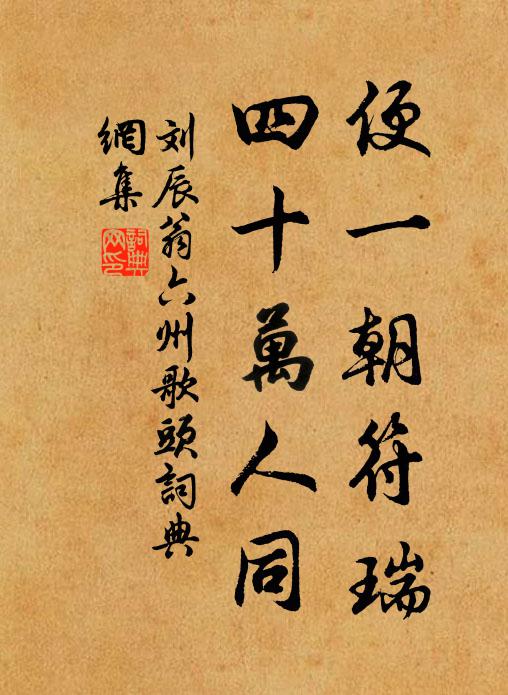 便一朝符瑞
四十萬人同
刘辰翁六州歌頭詞典
網集
詞典網印